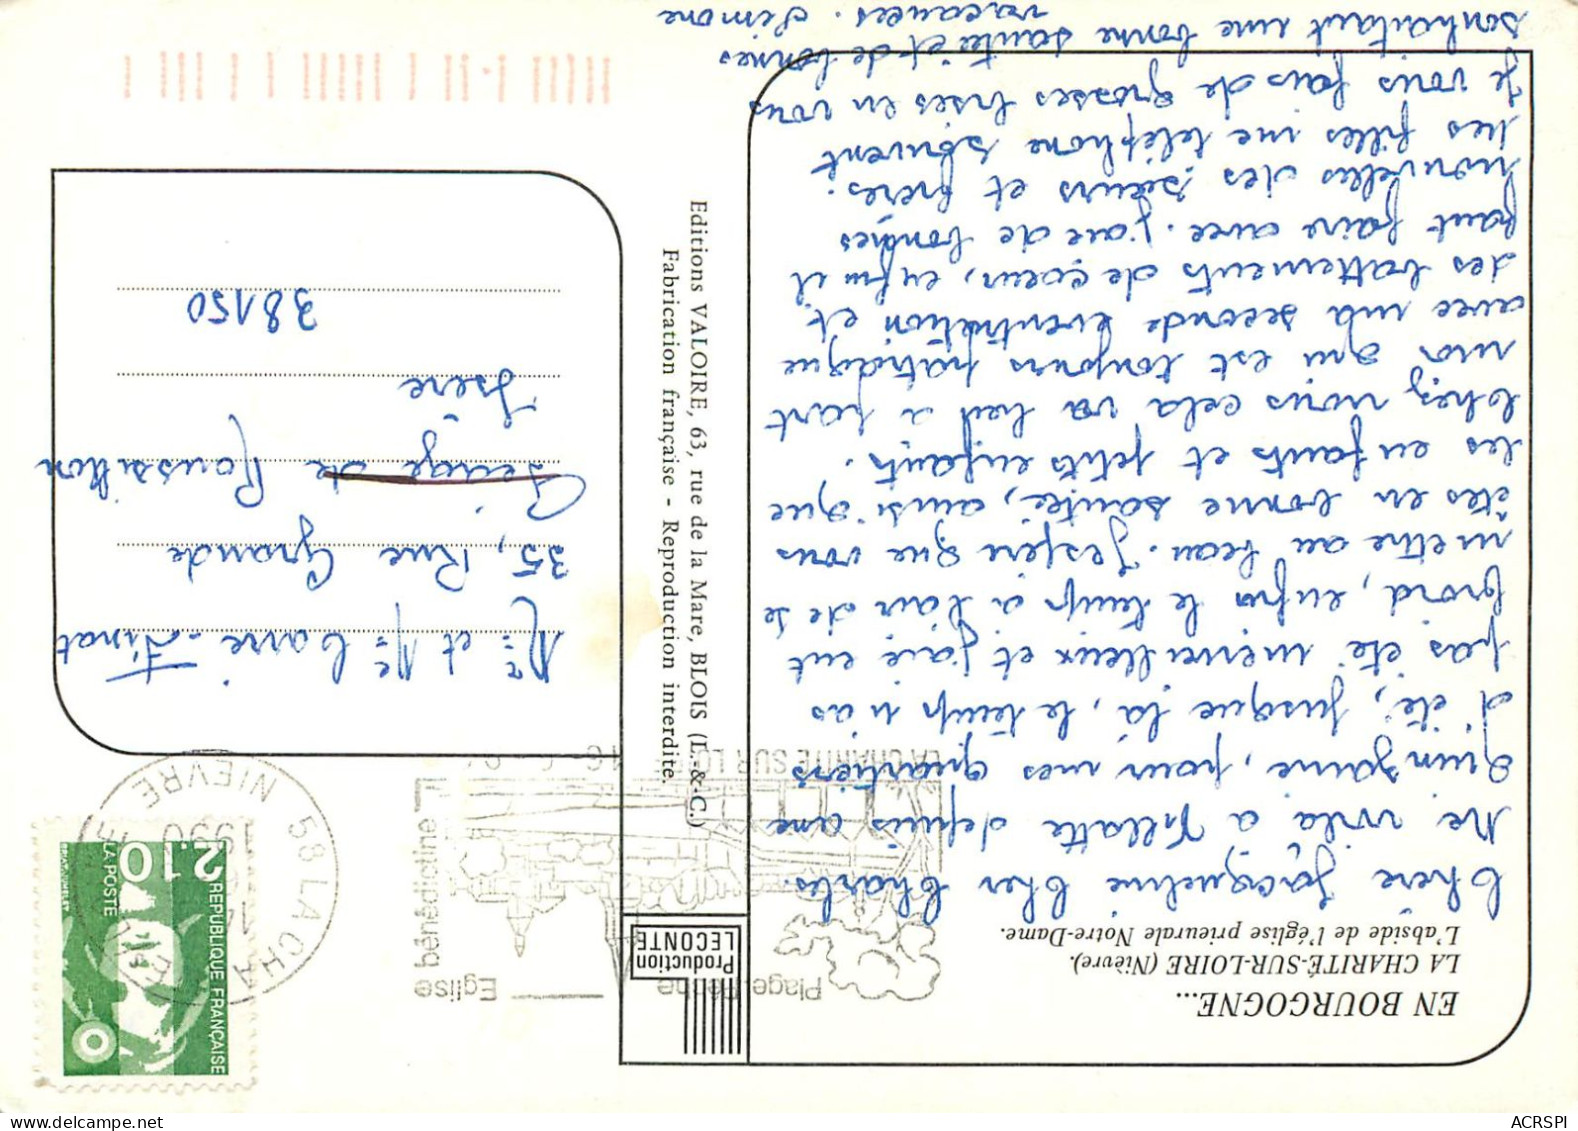 EN BOURGOGNE...
LA CHARITÉ-SUR-LOIRE (Nièvre).
L'abside de l'église prieurale Notre-Dame.
Chère Jacqueline Cher Charles.
Me voilà à Villatte depuis une
quinzaine, pour mes quartiers
d'été, jusque là, le temps n'as
pas été merveilleux et j'aie eut
froid, enfin le temps à l'air de se
mettre au beau. J'espère que vous
êtes en bonne santé, ainsi que
les enfants et petits enfants.
Chez nous cela va bien à part
moi qui est toujours patraque
avec ma seconde éventration et
des battements de coeur, enfin il
faut faire avec. J'aie de bonnes
nouvelles des soeurs et frères.
Les filles me téléphone souvent
Je vous fais de grosses bises en vous
souhaitant une bonne santé et de bonnes
vacances. Simone
Editions VALOIRE, 63, rue de la Mare, BLOIS (L.-&-C.)
Fabrication française - Reproduction interdite.
Production
LECONTE
Mr et Me Carre-Finat
35, Rue Grande
Péage de Roussillon
Isère
38150
2.10
REPUBLIQUE FRANÇAISE
LA POSTE
58 LA CHARITE
NIEVRE
1990
LA CHARITE SUR LOIRE
Eglise
bénédictine
Plage Pêche
ACRSPI